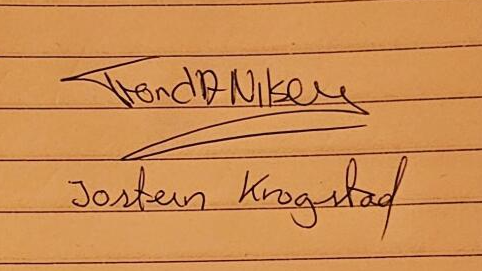 Trond A Nilsen
Jostein Krogstad